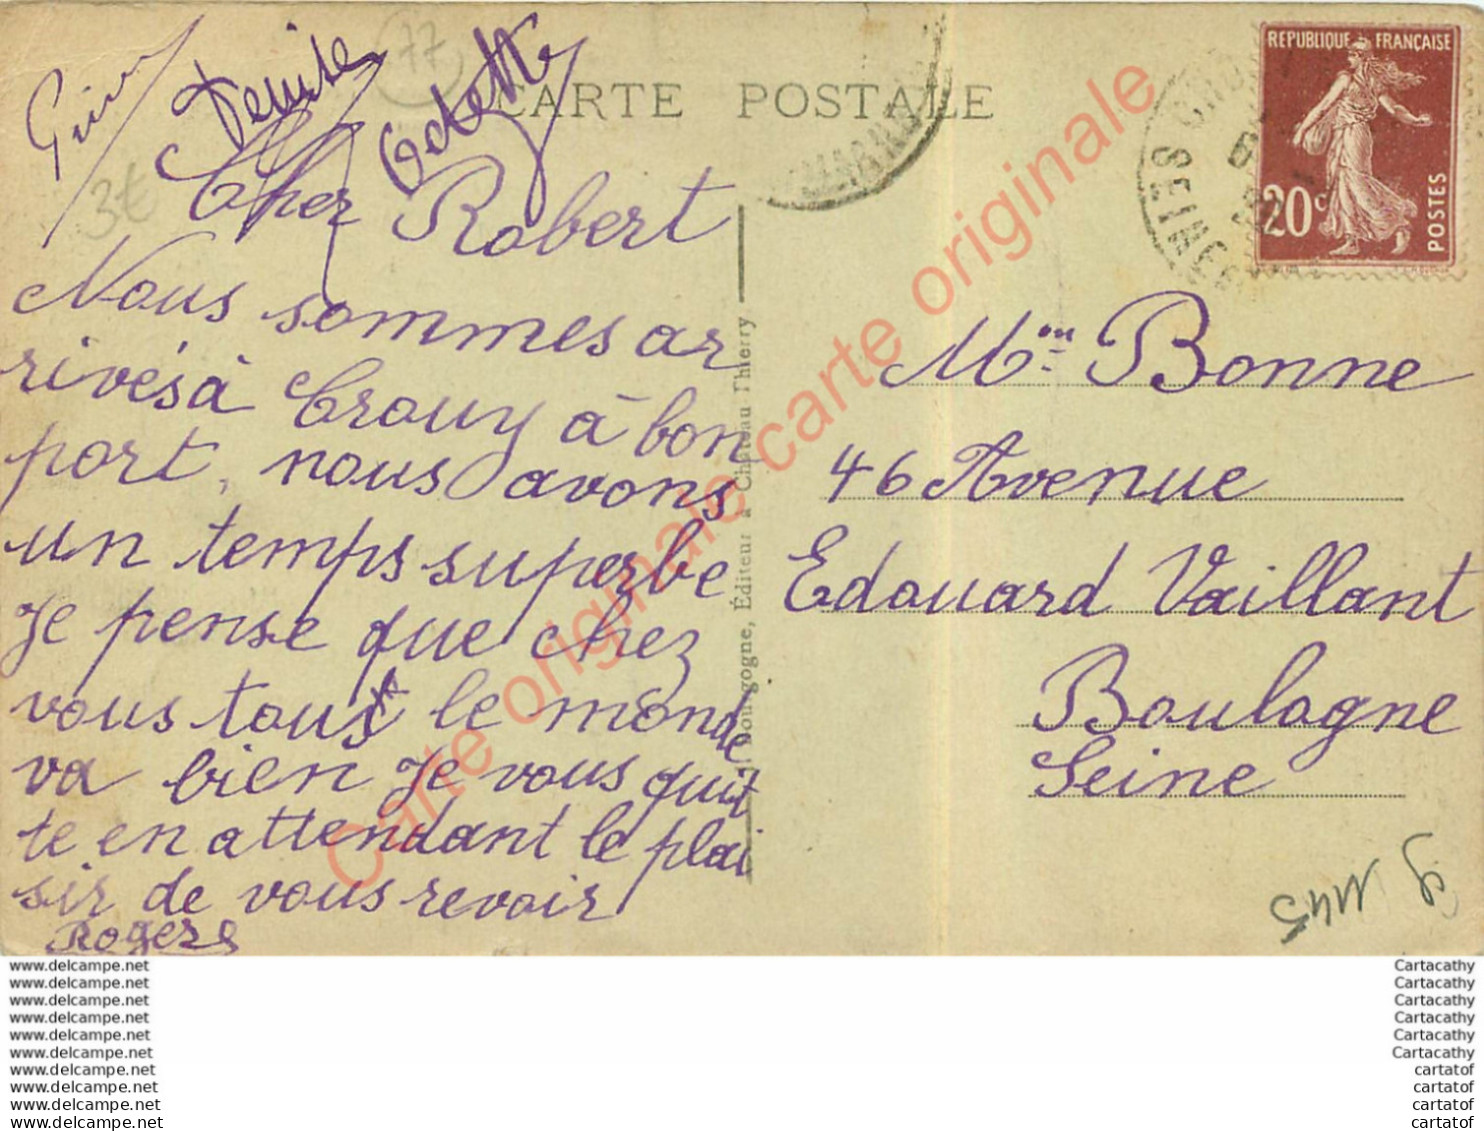 Denise
Odette
77
CARTE POSTALE
3€
Cher Robert
Nous sommes ar
rivés à Crouy à bon
port, nous avons
un temps superbe
Je pense que chez
vous tous le monde
va bien Je vous quit
te en attendant le plai
sir de vous revoir
Roger
Bourgogne, Éditeur à Château Thierry
REPUBLIQUE FRANÇAISE
20c
POSTES
Mon Bonne
46 Avenue
Edouard Vaillant
Boulogne
Seine
Carte originale carte originale carte originale
www.delcampe.net
www.delcampe.net
www.delcampe.net
www.delcampe.net
www.delcampe.net
www.delcampe.net
www.delcampe.net
www.delcampe.net
www.delcampe.net
www.delcampe.net
Cartacathy
Cartacathy
Cartacathy
Cartacathy
Cartacathy
Cartacathy
cartatof
cartatof
cartatof
cartatof